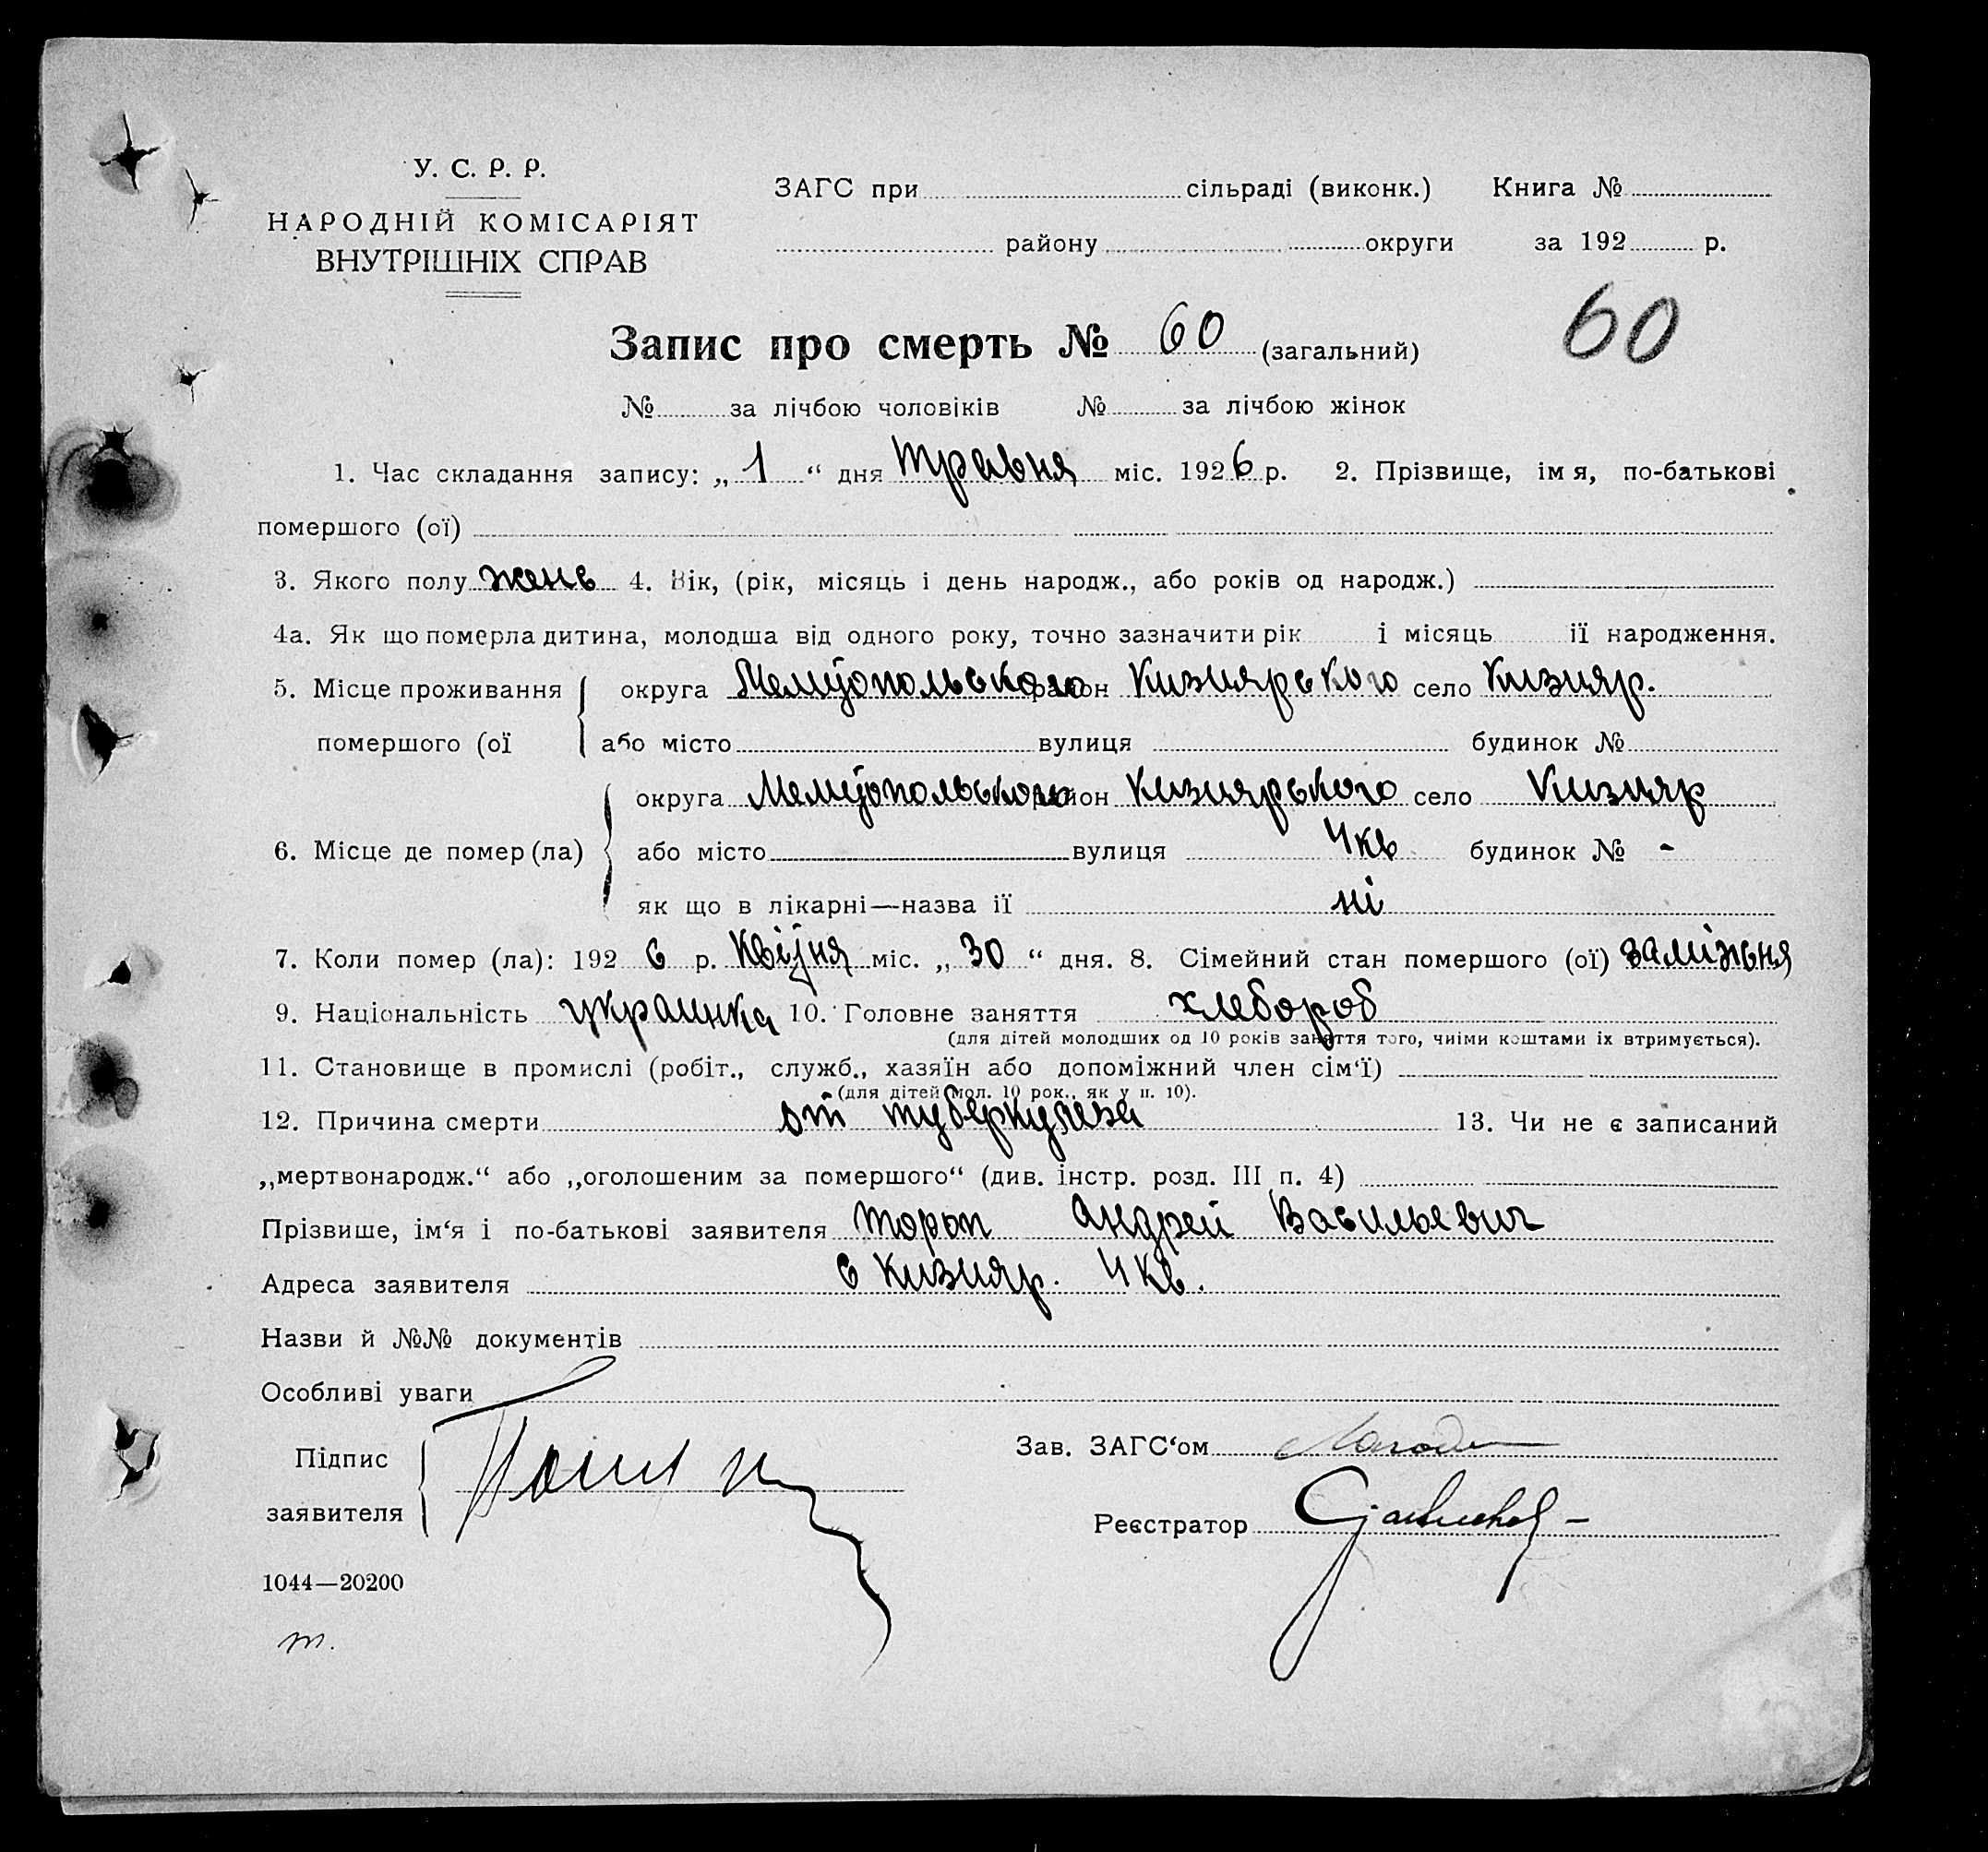 У. С. Р. Р.
НАРОДНІЙ КОМІСАРІЯТ
ВНУТРІШНІХ СПРАВ
ЗАГС при сільраді (виконк.) Книга №
району округи за 192 р.
60
Запис про смерть № 60 (загальний)
№ за лічбою чоловіків № за лічбою жінок
1. Час складання запису: „ 1 “ дня травня міс. 1926 р. 2. Прізвище, імя, по-батькові
помершого (ої)
3. Якого полу женс 4. Вік, (рік, місяць і день народж., або років од народж.)
4а. Як що померла дитина, молодша від одного року, точно зазначити рік і місяць її народження.
5. Місце проживання округа Мелітопольського район Кизиярського село Кизияр.
помершого (ої або місто вулиця будинок №
округа Мелітопольського район Кизиярського село Кизияр
6. Місце де помер (ла) або місто вулиця 4 кв будинок № -
як що в лікарні—назва її ні
7. Коли помер (ла): 192 6 р. Квітня міс. „ 30 “ дня. 8. Сімейний стан помершого (ої) заміжня
9. Національність украинка 10. Головне заняття хлебороб
(для дітей молодших од 10 років заняття того, чиїми коштами їх втримується).
11. Становище в промислі (робіт., служб., хазяїн або допоміжний член сім‘ї)
(для дітей мол. 10 рок., як у п. 10).
12. Причина смерти от туберкулеза 13. Чи не є записаний
„мертвонародж.“ або „оголошеним за помершого“ (див. інстр. розд. III п. 4)
Прізвише, ім‘я і по-батькові заявителя Тороп Андрей Васильевич
Адреса заявителя с Кизияр. 4 кв.
Назви й №№ документів
Особливі уваги
Підпис
заявителя
Зав. ЗАГС‘ом
Реєстратор
1044—20200
т.